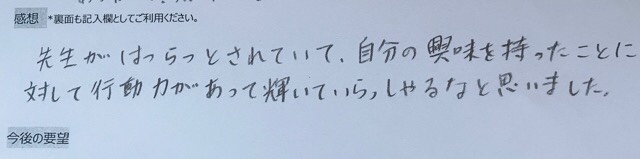 感想 *裏面も記入欄としてご利用ください。
先生がはつらつとされていて、自分の興味を持ったことに
対して行動力があって輝いていらっしゃるなと思いました。
今後の要望